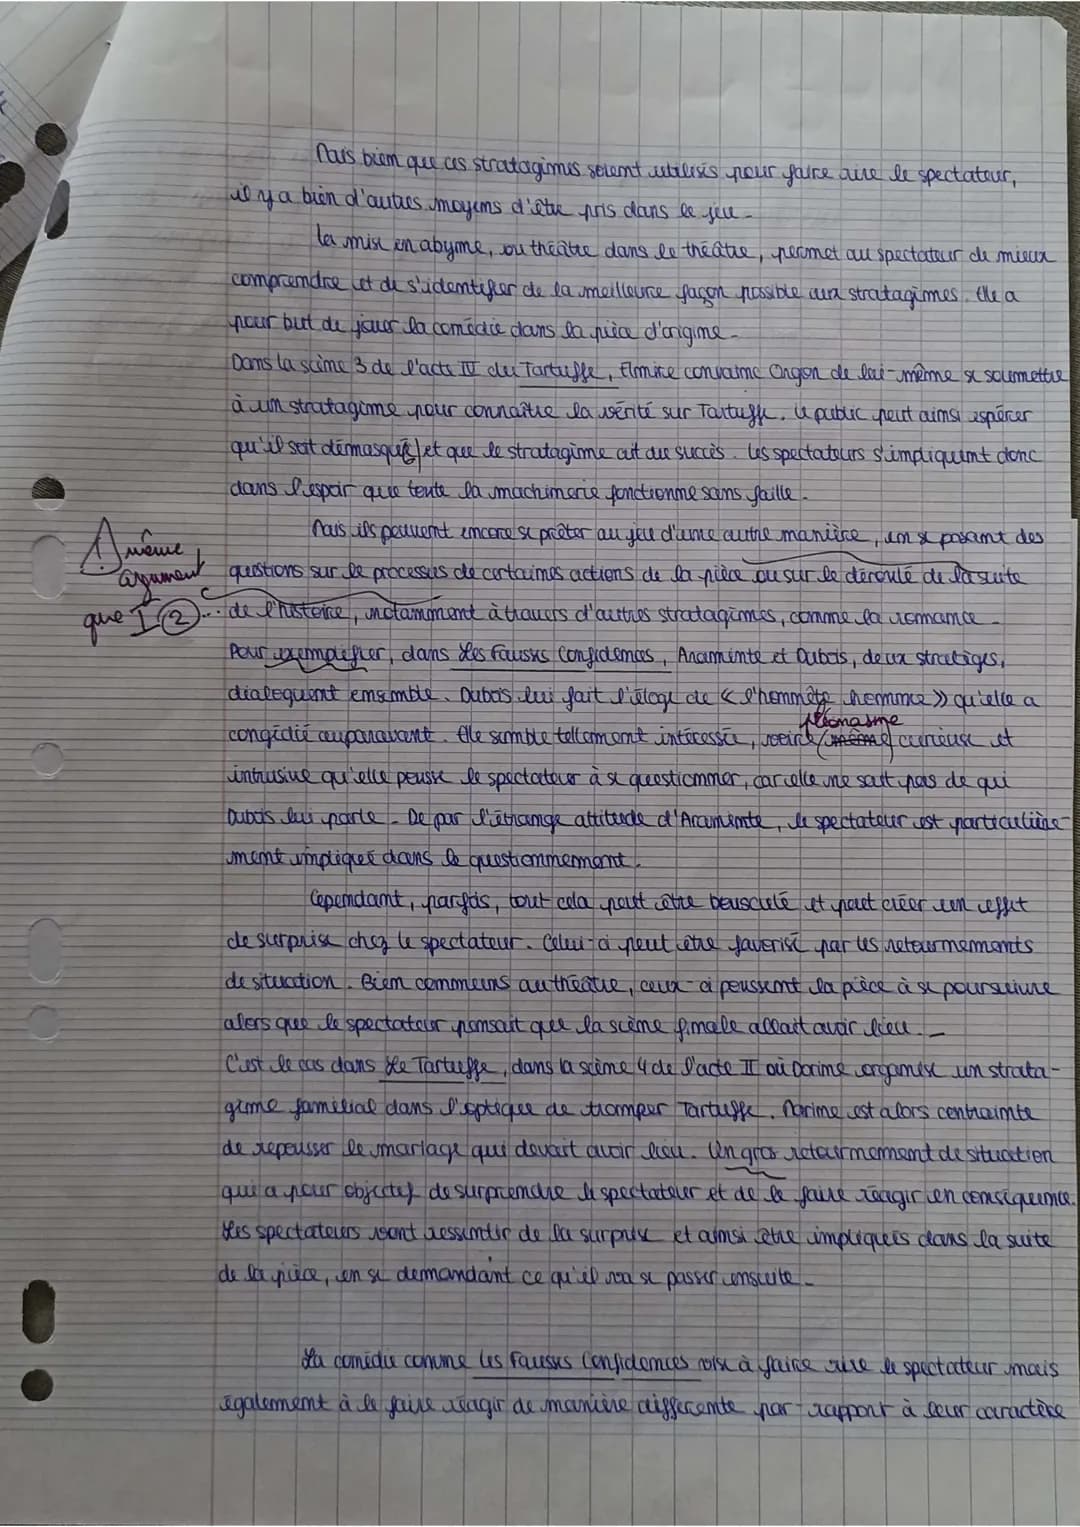 Mais bien que ces stratagèmes soient utilisés pour faire rire le spectateur,
il y a bien d'autres moyens d'être pris dans le jeu.
La mise en abyme, ou théâtre dans le théâtre, permet au spectateur de mieux
comprendre et de s'identifier de la meilleure façon possible aux stratagèmes. Elle a
pour but de jouer la comédie dans la pièce d'origine.
Dans la scène 3 de l'acte IV du Tartuffe, Elmire convainc Orgon de lui-même se soumettre
à un stratagème pour connaître la vérité sur Tartuffe. Le public peut ainsi espérer
qu'il soit démasqué et que le stratagème ait du succès. Les spectateurs s'impliquent donc
dans l'espoir que toute la machinerie fonctionne sans faille.
Mais ils peuvent encore se prêter au jeu d'une autre manière, en se posant des
⚠ même
argument
que I ②...
questions sur le processus de certaines actions de la pièce ou sur le déroulé de la suite
de l'histoire, notamment à travers d'autres stratagèmes, comme la romance.
Pour exemplifier, dans Les Fausses Confidences, Araminte et Dubois, deux stratèges,
dialoguent ensemble. Dubois lui fait l'éloge de « l'honnête homme » qu'elle a
pléonasme
congédié auparavant. Elle semble tellement intéressée, voire (même) curieuse et
intrusive qu'elle pousse le spectateur à se questionner, car elle ne sait pas de qui
Dubois lui parle. De par l'étrange attitude d'Araminte, le spectateur est particulière-
ment impliqué dans le questionnement.
Cependant, parfois, tout cela peut être bousculé et peut créer un effet
de surprise chez le spectateur. Celui-ci peut être favorisé par les retournements
de situation. Bien communs au théâtre, ceux-ci poussent la pièce à se poursuivre
alors que le spectateur pensait que la scène finale allait avoir lieu.
C'est le cas dans Le Tartuffe, dans la scène 4 de l'acte II où Dorine organise un strata-
gème familial dans l'optique de tromper Tartuffe. Marine est alors contrainte
de repousser le mariage qui devait avoir lieu. Un gros retournement de situation
qui a pour objectif de surprendre le spectateur et de le faire réagir en conséquence.
Les spectateurs vont ressentir de la surprise et ainsi être impliqués dans la suite
de la pièce, en se demandant ce qu'il va se passer ensuite.
La comédie comme Les Fausses Confidences vise à faire rire le spectateur mais
également à le faire réagir de manière différente par-rapport à leur caractère